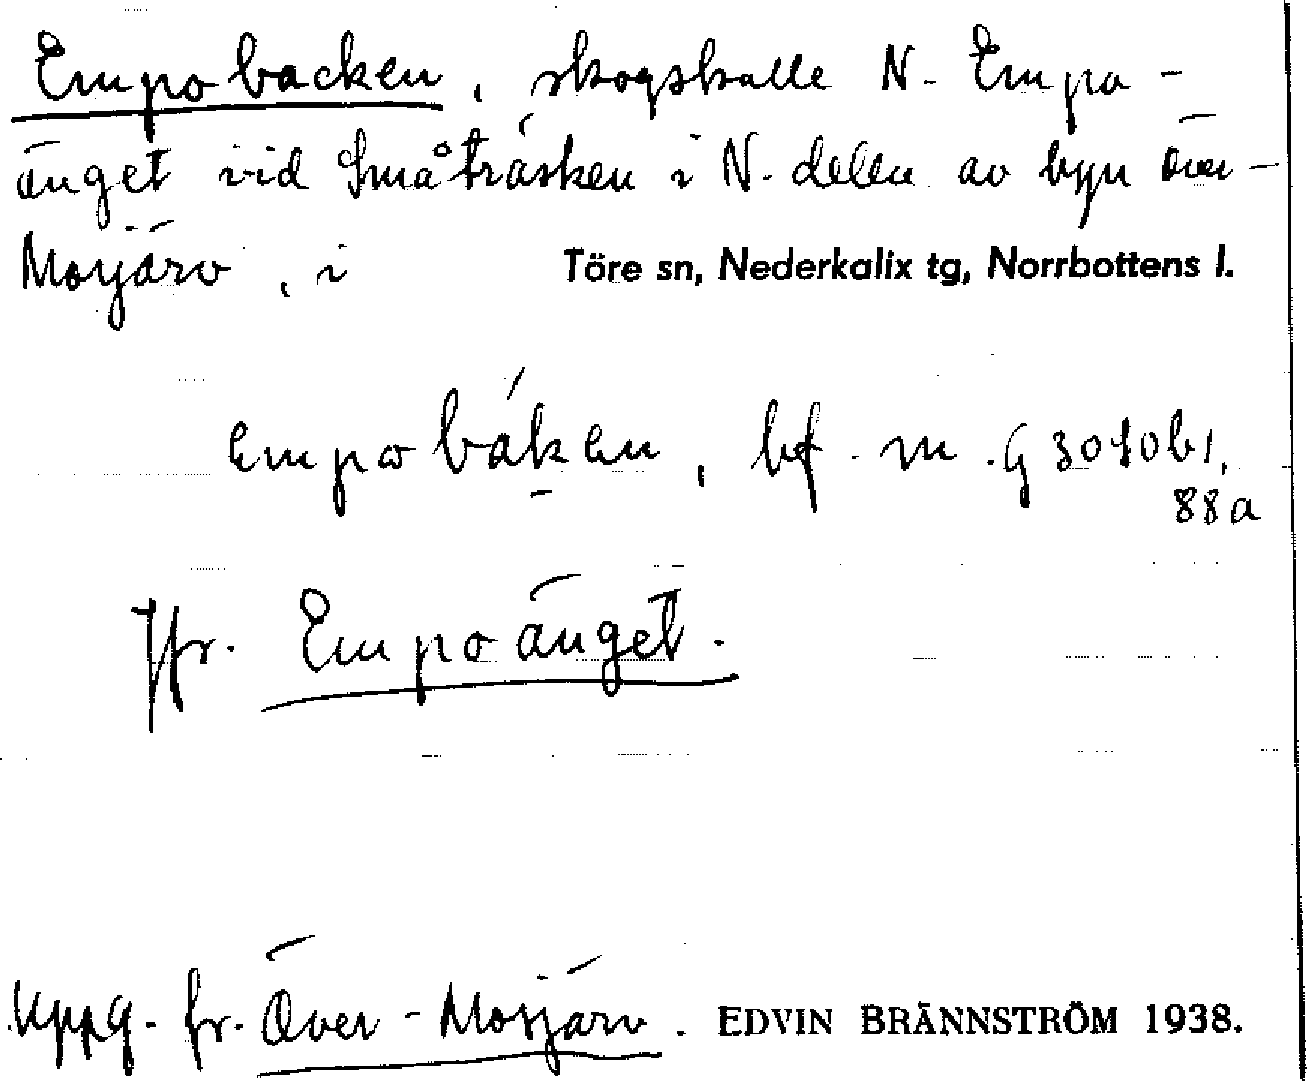 Empobacken, skogskulle N. Empo-
änget vid Småträsken i N. delen av byn Över-
Morjärv, i Töre sn, Nederkalix tg, Norrbottens l.
bf. m.
88a
Jfr. Empoänget.
Uppg. fr. Över-Morjärv. EDVIN BRÄNNSTRÖM 1938.